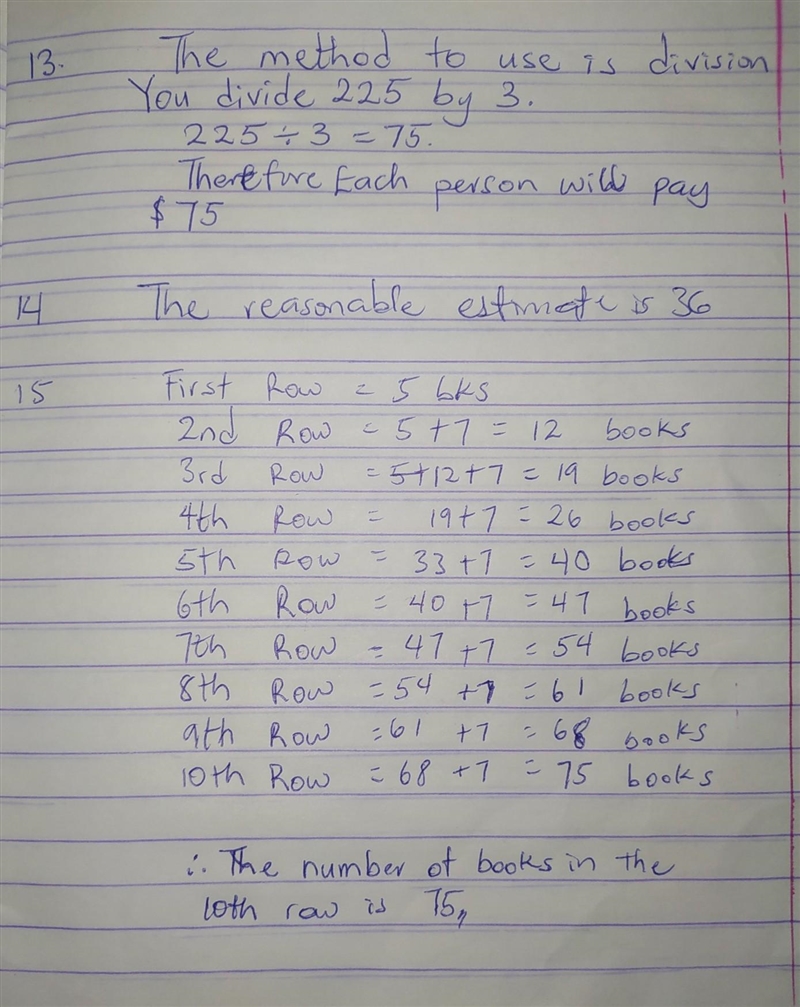 13. The method to use is division
You divide 225 by 3.
225 ÷ 3 = 75.
Therefore Each person will pay
$ 75
14 The reasonable estimate is 36
15 First Row = 5 bks
2nd Row = 5 + 7 = 12 books
3rd Row = 5+12+7 = 19 books
4th Row = 19+7 = 26 books
5th Row = 33 +7 = 40 books
6th Row = 40 +7 = 47 books
7th Row = 47 +7 = 54 books
8th Row = 54 +7 = 61 books
9th Row = 61 +7 = 68 books
10th Row = 68 +7 = 75 books
∴ The number of books in the
10th row is 75,,